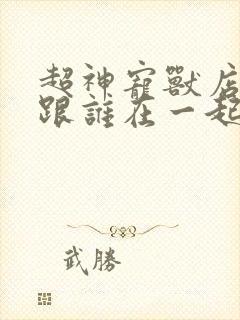 超神寵獸店
跟誰在一起
武勝